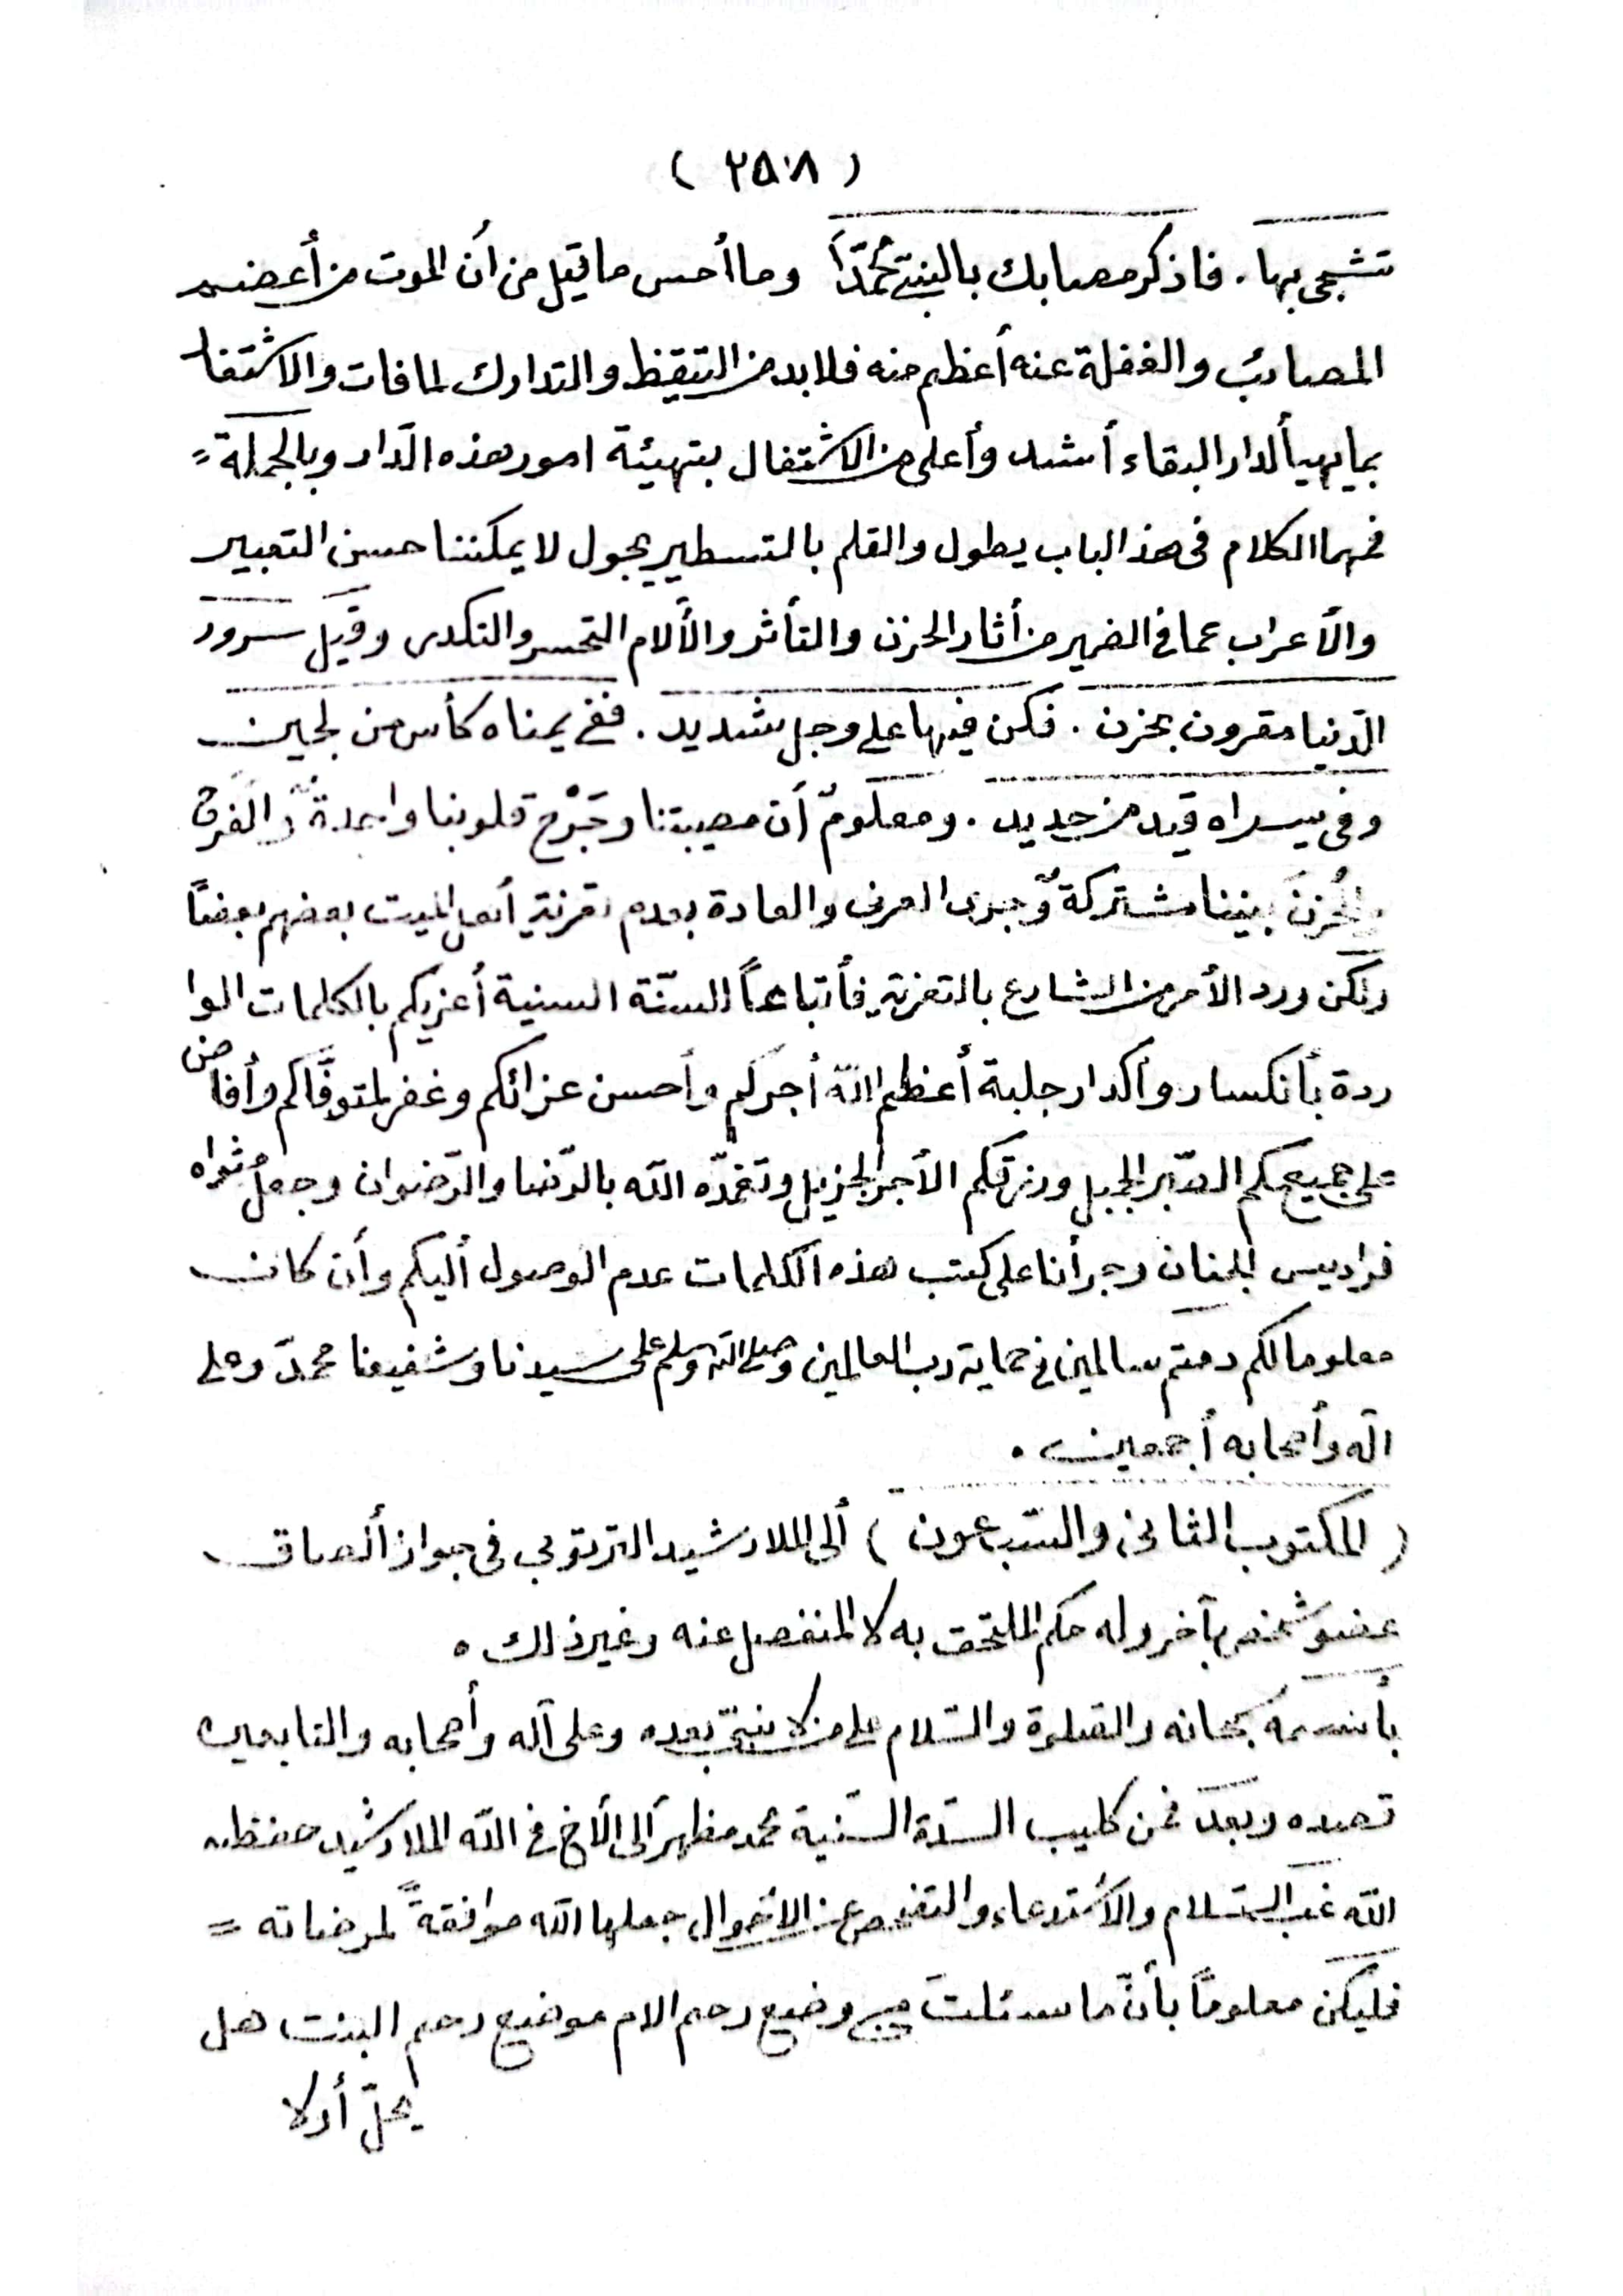 ( ٢٥٠٨ )
تشجى بها . فاذكر مصابك بالنبي محمّداً وما أحسن ما قيل من أن الموت من أعضم
المصائب والغفلة عنه أعظم منه فلابد من التيقظ والتدارك لما فات والاشتغا
بما يهيأ لدار البقاء أشد وأعلى من الاشتغال بتهيئة امور هذه الدّار وبالجملة =
فمهما الكلام في هذ الباب يطول والقلم بالتسطير يجول لا يمكننا حسن التعبير
والأعراب عما في الضمير من أثار الحزن والتأثر والألام التحسر والتكدر وقيل سرور
الدّنيا مقرون بحزن . فكن فيها على وجل شديد . ففي يمناه كأس من لجين
وفي يسراه قيد من حديد . ومعلومٌ أن مصيبتنا وجَرْح قلوبنا واحدة والفرق
والحُزنَ بيننا مشتركةٌ وجرى العرف والعادة بعدم تعزية أهل الميت بعضهم بعضاً
ولكن ورد الأمر من الشارع بالتعزية فأتباعاً السنّة السنية أعزيكم بالكلمات الوا
ردة بأنكسار وأكدار جلبة أعظم الله أجركم وأحسن عزائكم وغفر لمتوفّاكم وأفاض
على جميعكم الصّبر الجميل ورزقكم الأجر الجزيل وتغمّده الله بالرّضا والرّضوان وجعل مثواه
فراديس الجنان وجرأنا على كتب هذه الكلمات عدم الوصول أليكم وأن كانت
معلوما لكم دمتم سالمين في حماية رب العالمين وصلى الله وسلم على سيدنا وشفيعنا محمدّ وعلى
اله وأصحابه أجمعين .
( المكتوب الثاني والسّبعون ) ألى الملا رشيد الترتوبي في جواز ألصاق
عضو شخص بآخر وله حكم الملتحق به لا المنفصل عنه وغير ذلك ٠
بأسمه سبحانه والصّلوة والسّلام على من لا نبيّ بعده وعلى آله وأصحابه والتابعين
قصده وبعد فمن كليب السدّة السّنية محمد مظهر ألى الأخ في الله الملا رشيد حفظه
الله غب السّلام والأستدعاء والتفحص عن الأحوال جعلها الله موافقةً لمرضاته =
فليكن معلوماً بأنّ ما سئلتَ من وضع رحم الام موضع رحم البنت هل
يحلّ أولا